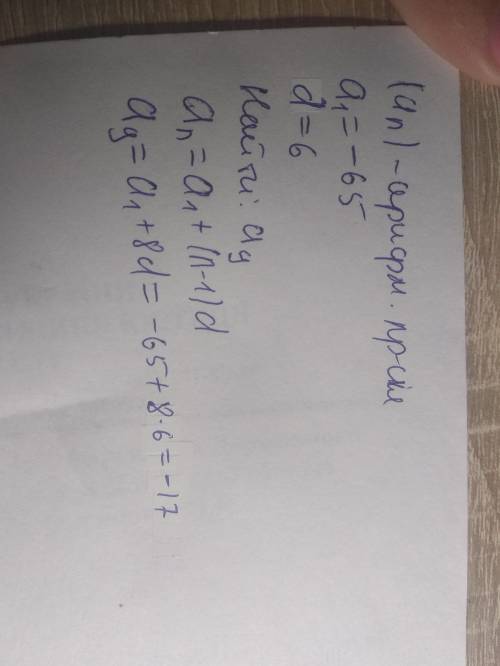 (aₙ) - арифм. прсия
a₁ = -65
d = 6
Найти: a₉
aₙ = a₁ + (n-1)d
a₉ = a₁ + 8d = -65 + 8·6 = -17